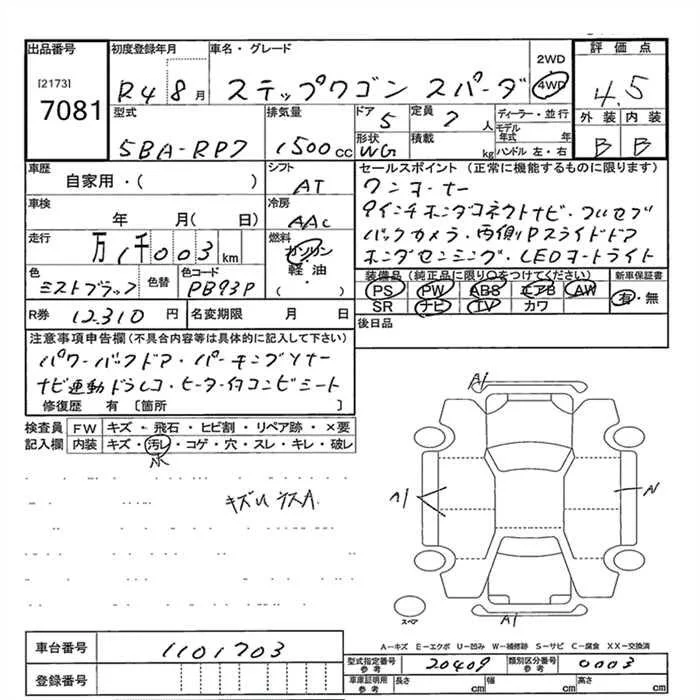 出品番号 初度登録年月 車名・グレード 2WD 4WD 評価点
[2173] 7081 R4 8月 ステップワゴン スパーダ 4.5
型式 排気量 ドア 5 定員 7人 ディーラー・並行 外装 内装
5BA-RP7 1500cc 形状 WG 積載 kg モデル年式 年 ハンドル 左・右 B B
車歴 自家用・( ) シフト AT セールスポイント(正常に機能するものに限ります)
ワンオーナー
車検 年 月( 日) 冷房 AAC
9インチホンダコネクトナビ・フルセグ
走行 万1千003km 燃料 ガソリン・軽油・( )
バックカメラ・両側Pスライドドア
ホンダセンシング・LEDオートライト
色 ミストブラック 色替 色コード PB93P
装備品(純正品に限り○をつけてください) 新車保証書
PS PW ABS エアB AW 有・無
SR ナビ TV カワ
R券 12310円 名変期限 月 日 後日品
注意事項申告欄(不具合内容等は具体的に記入して下さい)
パワーバックドア・パーキングソナー
ナビ連動ドラレコ・ヒーター付コンビシート
修復歴 有[箇所 ]
検査員記入欄 FW キズ・飛石・ヒビ割・リペア跡・×要
内装 キズ・汚レ・コゲ・穴・スレ・キレ・破レ
小
キズ
A1
A1
A1
スペア
A-キズ E-エクボ U-凹み W-補修跡 S-サビ C-腐食 XX-交換済
車台番号 1101703
型式指定番号 参考 20409 類別区分番号 参考 0003
登録番号
車庫証明用 参考 長さ cm 幅 cm 高さ cm